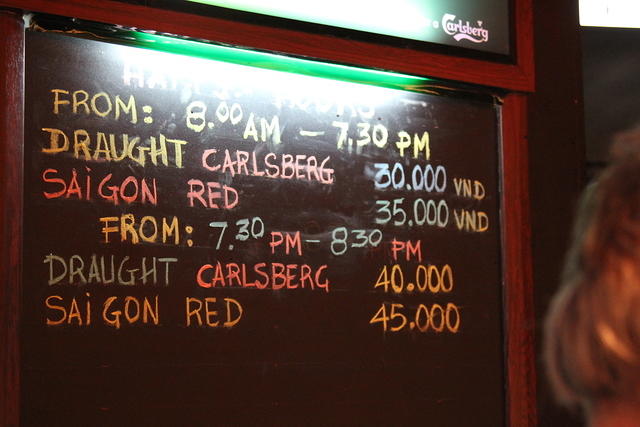 Carlsberg
HAPPY HOURS
FROM: 8.00 AM - 7.30 PM
DRAUGHT CARLSBERG 30.000 VND
SAiGON RED 35.000 VND
FROM: 7.30 PM - 8 30 PM
DRAUGHT CARLSBERG 40.000
SAiGON RED 45.000